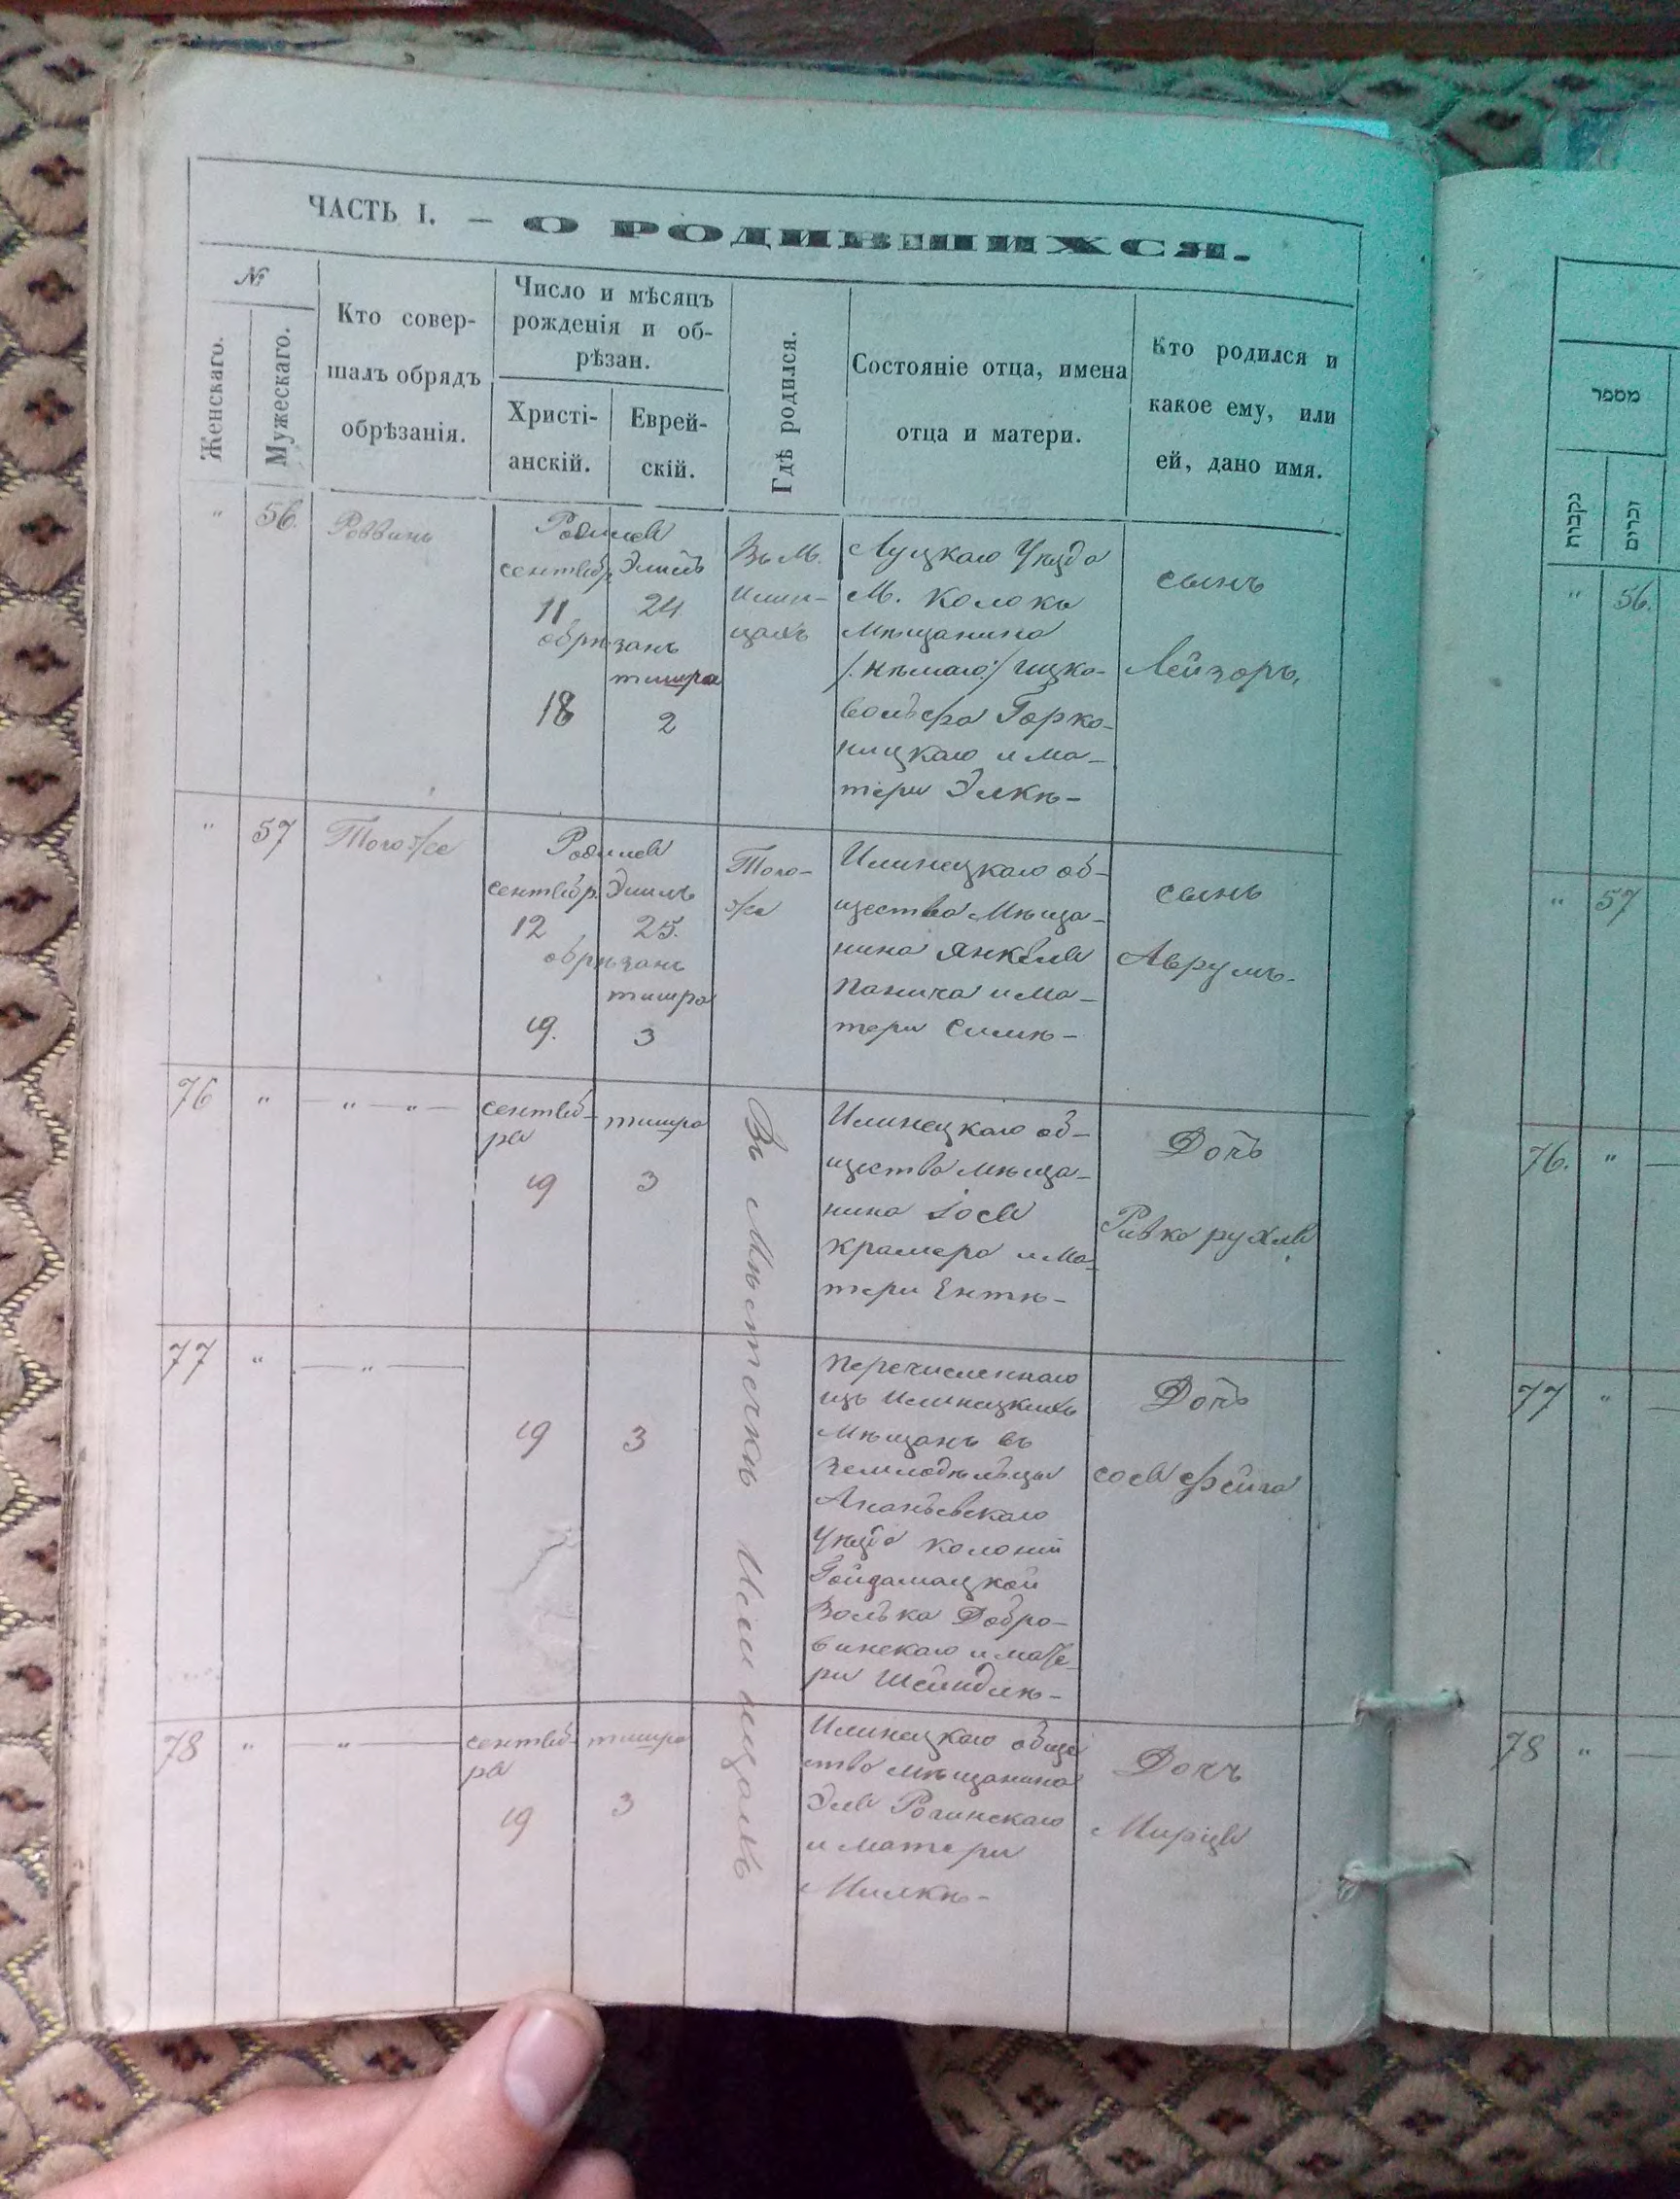 ЧАСТЬ I. — О РОДИВШИХСЯ.
№
Женскаго.
Мужескаго.
Кто совер-
шалъ обрядъ
обрѣзанія.
Число и мѣсяцъ
рожденія и об-
рѣзан.
Христі-
анскій.
Еврей-
скій.
Гдѣ родился.
Состояніе отца, имена
отца и матери.
Кто родился и
какое ему, или
ей, дано имя.
" 56. Раввинъ
Родился
сентябр. Элиль
11 24
обрѣзанъ
тишра
18 2
Въ М.
Илин-
цахъ
Луцкаго Уѣзда
М. Колокъ
Мѣщанина
/:нѣмаго:/ Ицко-
вольфа Горко-
ницкаго и ма-
тери Элкѣ-
сынъ
Лейзоръ.
" 57 Того же
Родился
сентябр. Элиль
12 25.
обрѣзанъ
тишра
19. 3
Того-
же
Илинецкаго об-
щества Мѣща-
нина Янкеля
Панича и Ма-
тери Симѣ-
сынъ
Аврумъ.
76 " — " — " —
сентяб-
ря
тишра
19 3
Въ Мѣстечкѣ Илинцахъ
Илинецкаго об-
щества мѣща-
нина Іося
Крамера и Ма-
тери Ентѣ-
Дочь
Ривка рухля
77 " — " —
19 3
перечисленнаго
изъ Илинецкихъ
Мѣщанъ въ
земледѣльцы
Ананьевскаго
Уѣзда колоніи
Гайдамацкой
Волька Добро-
винскаго и мате-
ри Шейндлѣ-
Дочь
Сося Фейга
78 " — " —
сентяб-
ря
тишра
19 3
Илинецкаго обще
ства мѣщанина
Эля Рогинскаго
и матери
Милкѣ-
Дочъ
Миріля
מספר
נקבות
זכרים
" 56.
" 57
76. " —
77 " —
78 " —